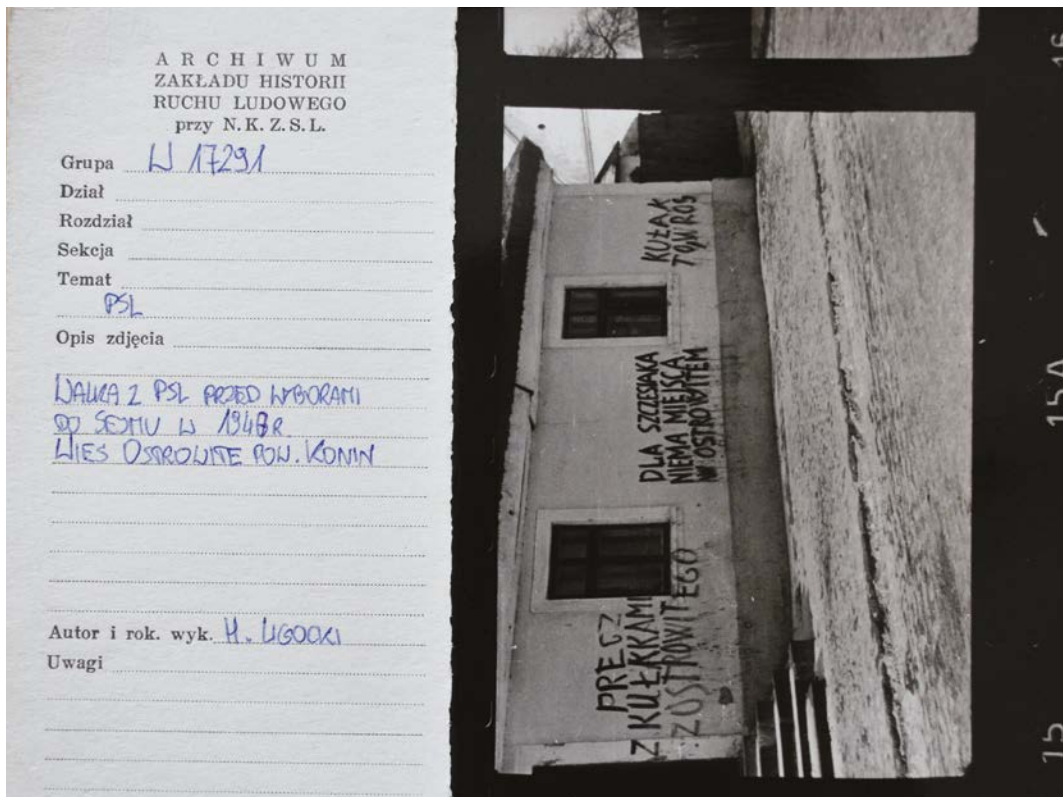 ARCHIWUM
ZAKŁADU HISTORII
RUCHU LUDOWEGO
przy N.K.Z.S.L.
Grupa W 17291
Dział
Rozdział
Sekcja
Temat
PSL
Opis zdjęcia
WALKA Z PSL PRZED WYBORAMI
DO SEJMU W 1948 R.
WIEŚ OSTROWITE POW. KONIN
Autor i rok. wyk. H. LIGOCKI
Uwagi
PRECZ
Z KUŁKKAMI
Z USTROWITEGO
DLA SZCZESIAKA
NIEMA MIEJSCA
W OSTROWITEM
KUŁAK
15
15A
16